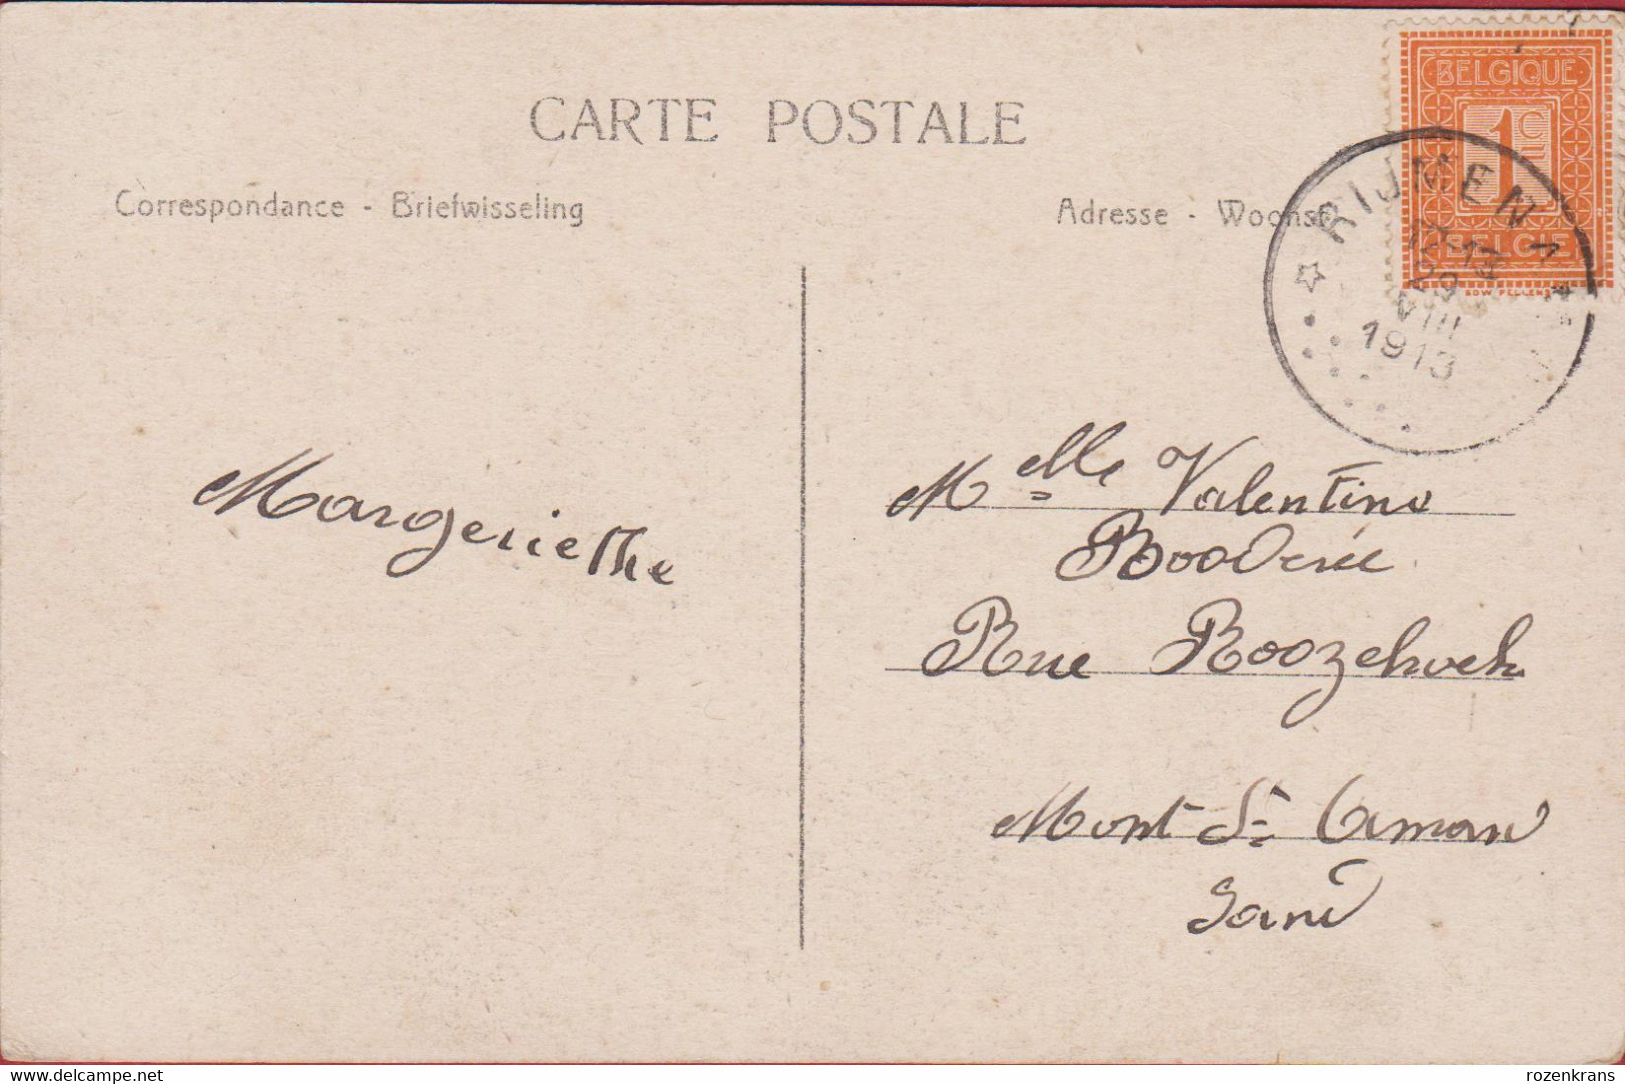 BELGIQUE
1 C
BELGIË
CARTE POSTALE
Correspondance - Briefwisseling
Adresse - Woonst
RIJMENA
29
VIII
1913
Margeriethe
Melle Valentine
Rue Roozehoek
Mont St Aman
Gand
delcampe.net
rozenkrans